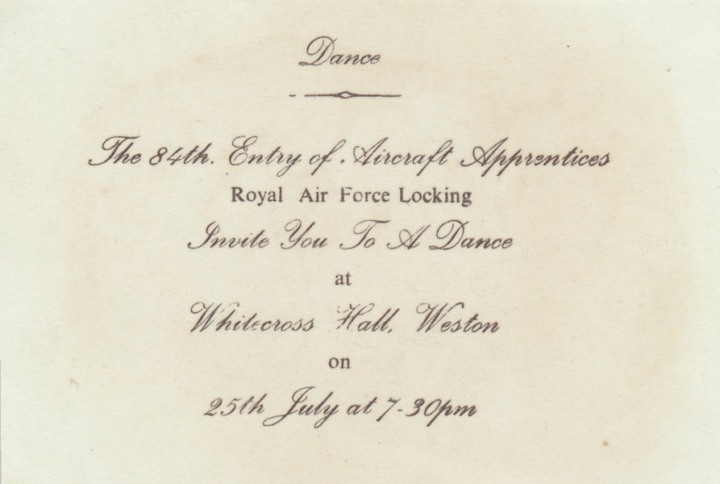 Dance
The 84th. Entry of Aircraft Apprentices
Royal Air Force Locking
Invite You To A Dance
at
Whitecross Hall, Weston
on
25th July at 7-30pm